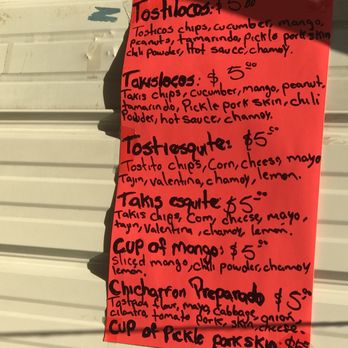 Tostilocos: $5.00
Tosticos chips, cucumber, mango,
peanuts, tamarindo, Pickle pork skin
chili powder, Hot sauce, chamoy.
Takislocos: $5.00
Takis chips, cucumber, mango, peanut,
tamarindo, Pickle pork skin, chili
Powder, hot sauce, chamoy.
Tostiesquite: $5.00
Tostito chips, Corn, cheese, mayo
Tajin, valentina, chamoy, lemon.
Takis esquite $5.00
Takis chips, Corn, cheese, mayo,
tajin, valentina, chamoy, lemon.
Cup of mango: $5.00
Sliced mango, chili powder, chamoy
lemon.
Chicharron Preparado $5.00
Tostada flour, mayo, cabbage, onion,
cilantro, tomato, pork, skin, cheese.
Cup of Pickle Pork skin: $5.00